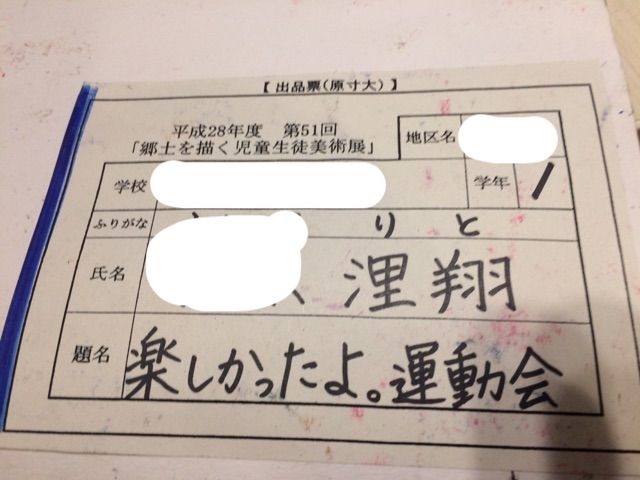 【 出品票(原寸大) 】
平成28年度 第51回
「郷土を描く児童生徒美術展」
地区名
学校
学年 1
ふりがな りと
氏名 浬翔
題名 楽しかったよ。運動会